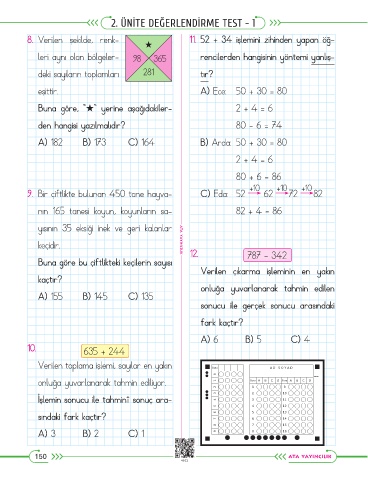 2. ÜNİTE DEĞERLENDİRME TEST - 1
8. Verilen şekilde, renk-
leri aynı olan bölgeler-
deki sayıların toplamları
eşittir.
★
98 365
281
Buna göre, "★" yerine aşağıdakiler-
den hangisi yazılmalıdır?
A) 182 B) 173 C) 164
9. Bir çiftlikte bulunan 450 tane hayva-
nın 165 tanesi koyun, koyunların sa-
yısının 35 eksiği inek ve geri kalanlar
keçidir.
Buna göre bu çiftlikteki keçilerin sayısı
kaçtır?
A) 155 B) 145 C) 135
10. 635 + 244
Verilen toplama işlemi, sayılar en yakın
onluğa yuvarlanarak tahmin ediliyor.
İşlemin sonucu ile tahminî sonuç ara-
sındaki fark kaçtır?
A) 3 B) 2 C) 1
11. 52 + 34 işlemini zihinden yapan öğ-
rencilerden hangisinin yöntemi yanlış-
tır?
A) Ece: 50 + 30 = 80
2 + 4 = 6
80 - 6 = 74
B) Arda: 50 + 30 = 80
2 + 4 = 6
80 + 6 = 86
C) Eda: 52 +10 62 +10 72 +10 82
82 + 4 = 86
12. 787 - 342
Verilen çıkarma işleminin en yakın
onluğa yuvarlanarak tahmin edilen
sonucu ile gerçek sonucu arasındaki
fark kaçtır?
A) 6 B) 5 C) 4
AD SOYAD
150
ATA YAYINCILIK